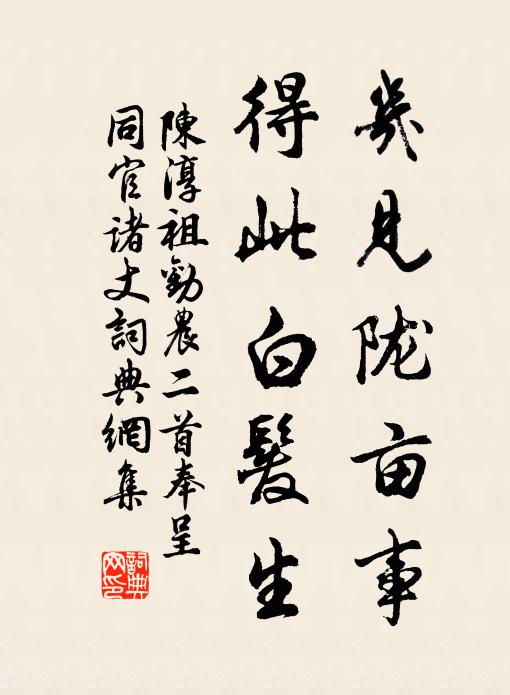 幾見陇亩事
得此白髮生
陳淳祖勸農二首奉呈
同官诸丈詞典網集
詞典
网印